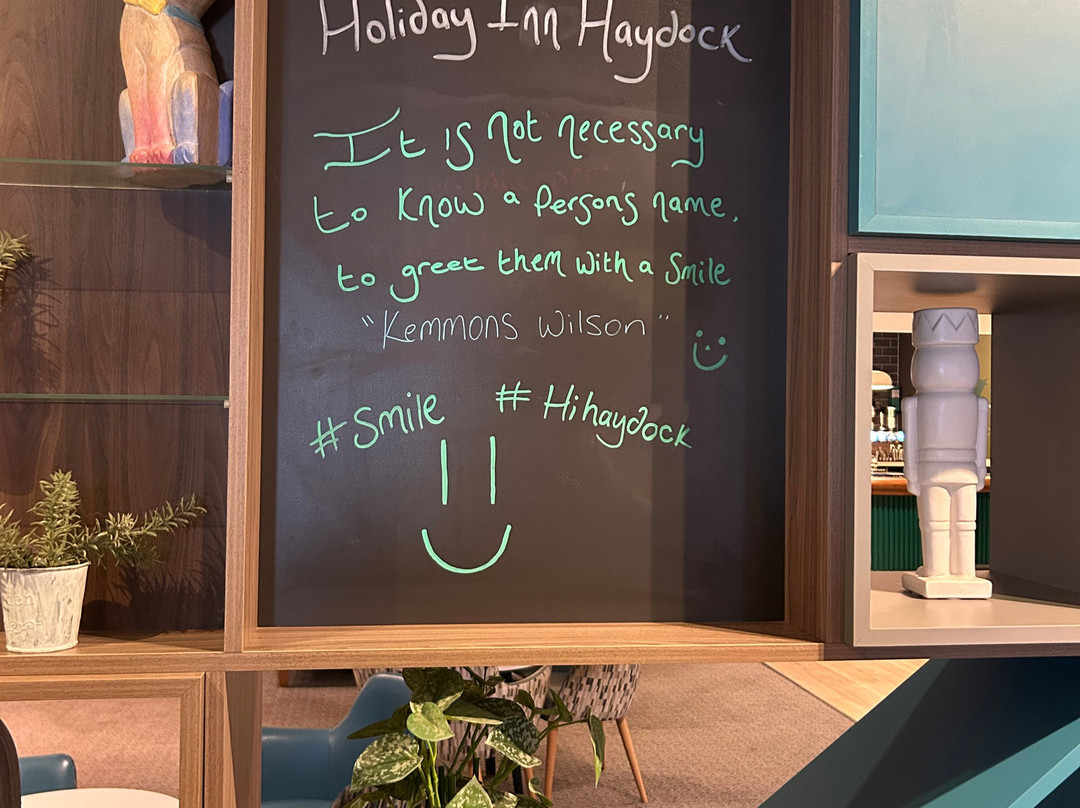 Holiday Inn Haydock
It is not necessary
to know a person's name,
to greet them with a smile
"Kemmons Wilson"
#Smile #Hihaydock